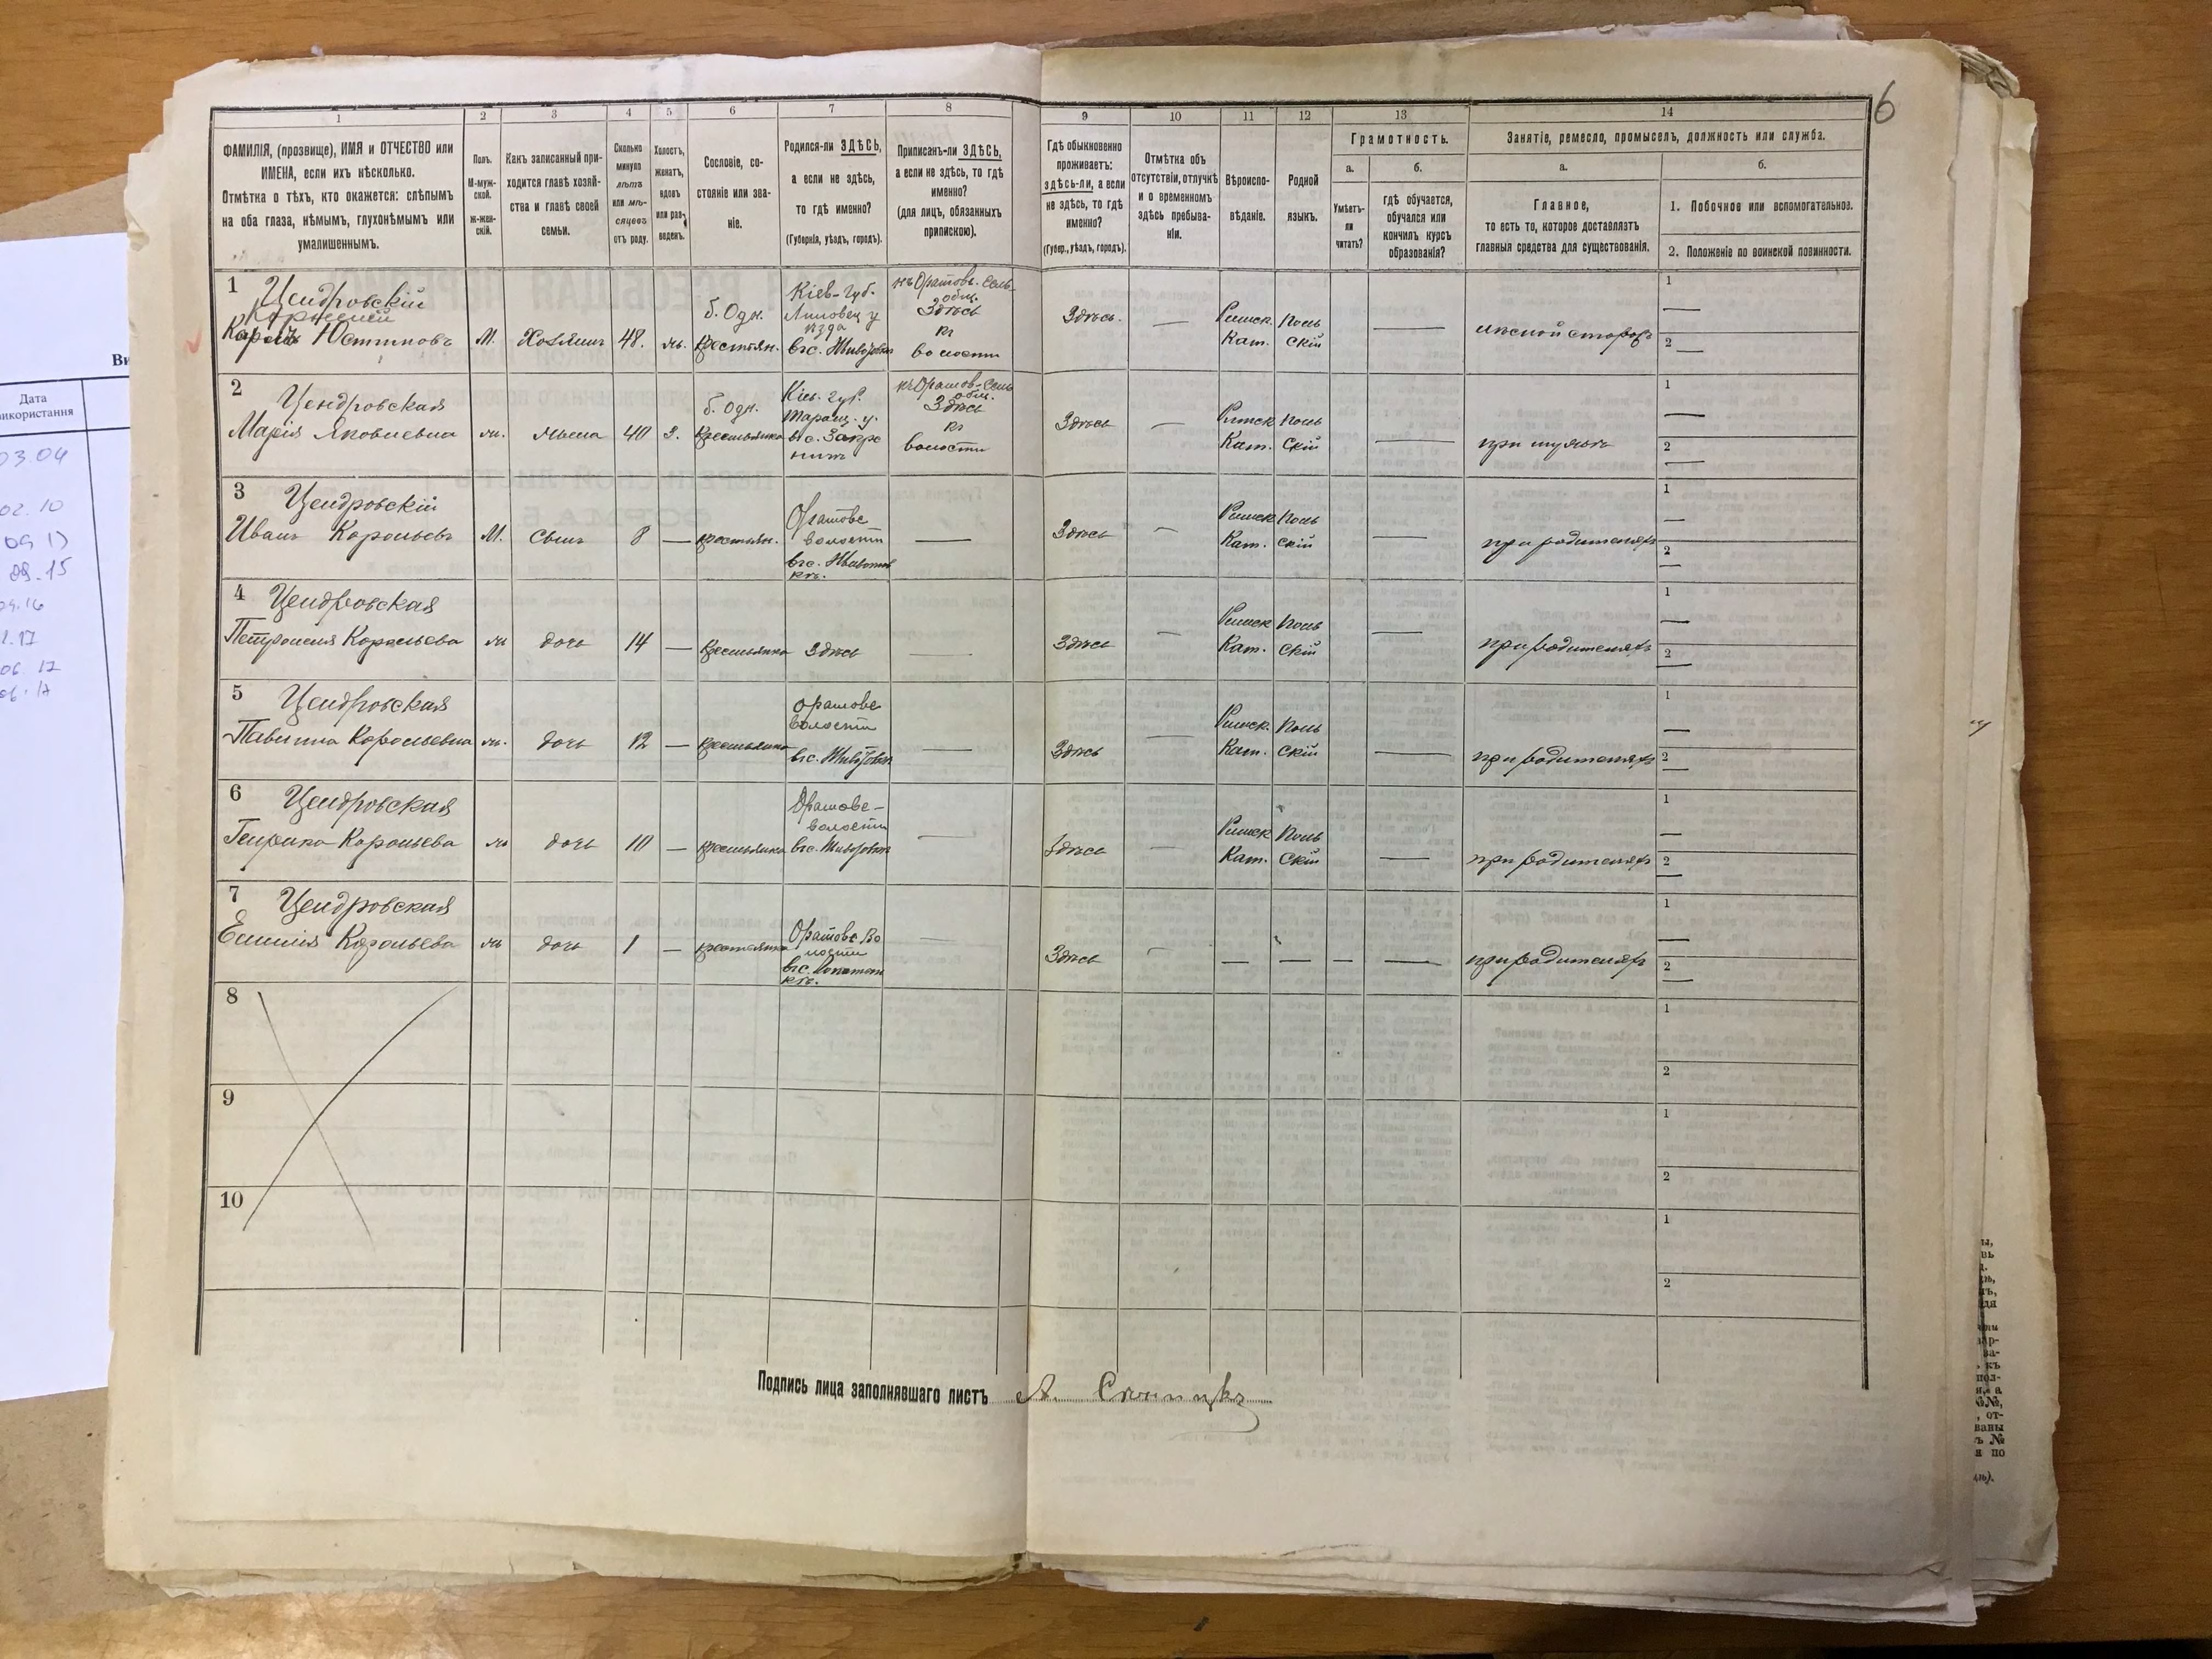 6
1
2
3
4
5
6
7
8
9
10
11
12
13
14
ФАМИЛІЯ, (прозвище), ИМЯ и ОТЧЕСТВО или
ИМЕНА, если ихъ нѣсколько.
Отмѣтка о тѣхъ, кто окажется: слѣпымъ
на оба глаза, нѣмымъ, глухонѣмымъ или
умалишеннымъ.
Полъ.
М-муж-
ской.
Ж-жен-
скій.
Какъ записанный при-
ходится главѣ хозяй-
ства и главѣ своей
семьи.
Сколько
минуло
лѣтъ
или мѣ-
сяцевъ
отъ роду.
Холостъ,
женатъ,
вдовъ
или раз-
веденъ.
Сословіе, со-
стояніе или зва-
ніе.
Родился-ли ЗДѢСЬ,
а если не здѣсь,
то гдѣ именно?
(Губернія, уѣздъ, городъ).
Приписанъ-ли ЗДѢСЬ,
а если не здѣсь, то гдѣ
именно?
(для лицъ, обязанныхъ
припискою).
Гдѣ обыкновенно
проживаетъ:
здѣсь-ли, а если
не здѣсь, то гдѣ
именно?
(Губер., уѣздъ, городъ).
Отмѣтка объ
отсутствіи, отлучкѣ
и о временномъ
здѣсь пребыва-
ніи.
Вѣроиспо-
вѣданіе.
Родной
языкъ.
Грамотность.
а.
Умѣетъ-
ли
читать?
б.
гдѣ обучается,
обучался или
кончилъ курсъ
образованія?
Занятіе, ремесло, промыселъ, должность или служба.
а.
Главное,
то есть то, которое доставляетъ
главныя средства для существованія.
б.
1. Побочное или вспомогательное.
2. Положеніе по воинской повинности.
1
Цендровскій
Карлъ Юстиновъ
М.
Хозяинъ
48.
ж.
б. Одн.
Крестьян.
Кіев. Губ.
Липовец у
ѣзда
въ с. Животовк
къ Оратов. Сель.
общ.
Здѣсь
къ
волости
Здѣсь.
—
Римск.
Кат.
Поль
скій
—
лѣсной сторож
1 —
2 —
2
Цендровская
Марія Яковлевна
ж.
жена
40
З.
б. Одн.
Крестьянка
Кіев. губ.
Таращ. у.
въ с. Закре
ницъ
къ Оратов. Сель
общ.
Здѣсь
къ
волости
Здѣсь
—
Римск.
Кат.
Поль
Скій
—
при мужѣ
1 —
2 —
3
Цендровскій
Иванъ Карольевъ
М.
Сынъ
8
—
крестьян.
Оратовс
волости
—
Здѣсь
—
Римск.
Кат.
Поль
скій
—
при родителяхъ
1 —
2 —
4
Цендровская
Петронеля Карольева
ж
дочь
14
—
Крестьянка
Здѣсь
—
Здѣсь
—
Римск
Кат.
Поль
Скій
—
при родителяхъ
1 —
2 —
5
Цендровская
Павлина Карольевна
ж.
дочь
12
—
крестьянка
Оратовс
волости
въ с. Животовк
—
Здѣсь
—
Римск.
Кат.
Поль
Скій
—
при родителяхъ
1 —
2 —
6
Цендровская
Генрика Карольева
ж
дочь
10
—
крестьянка
Оратовс-
волости
въ с. Животовк
—
Здѣсь
—
Римск
Кат.
Поль
Скій
—
при родителяхъ
1 —
2 —
7
Цендровская
Емилія Карольева
ж
дочь
1
—
крестьянка
Оратовс. Во
лости
—
Здѣсь
—
—
—
—
—
при родителях
1 —
2 —
8
1
2
9
1
2
10
1
2
Подпись лица заполнявшаго листъ
Дата
використання
03.04
02.10
09.15
04.16
06.17
06.17